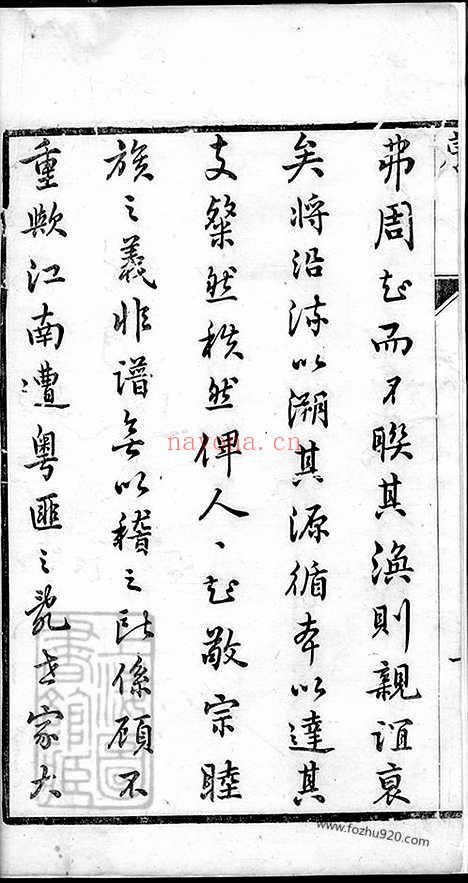 弗周知而不聯其渙則親誼衰
矣將沿流以溯其源循本以達其
支粲然秩然俾人、知敬宗睦
族之義非譜無以稽之所係顧不
重歟江南遭粵匪之亂世家大
nayona.cn
www.fozhu920.com